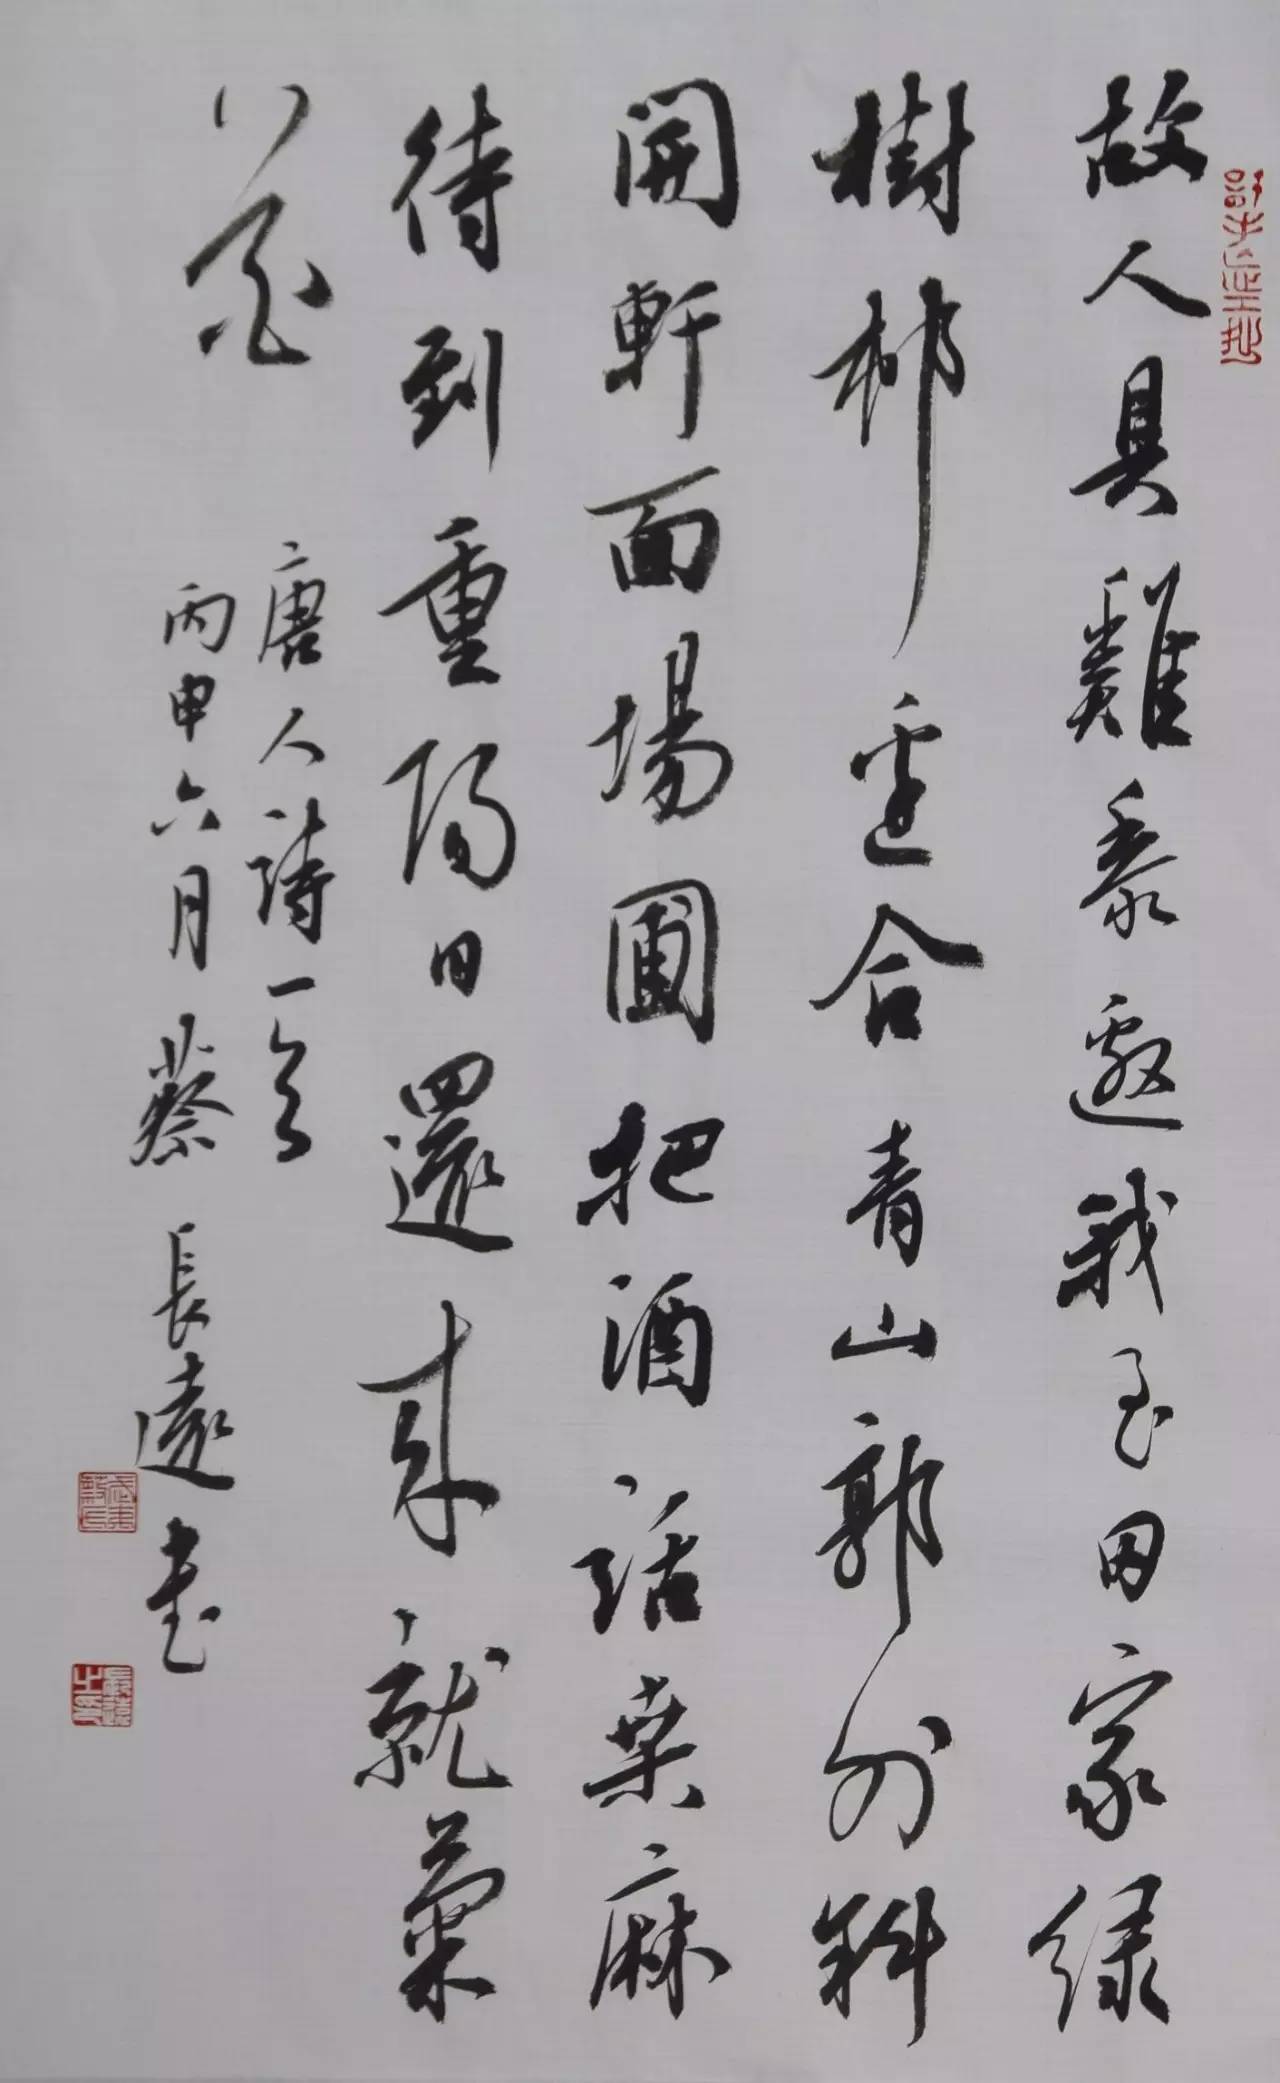 故人具雞黍邀我至田家綠
樹邨邊合青山郭外斜
開軒面場圃把酒話桑麻
待到重陽日還來就菊
花
唐人詩一首
丙申六月蔡長遠書
長遠之印